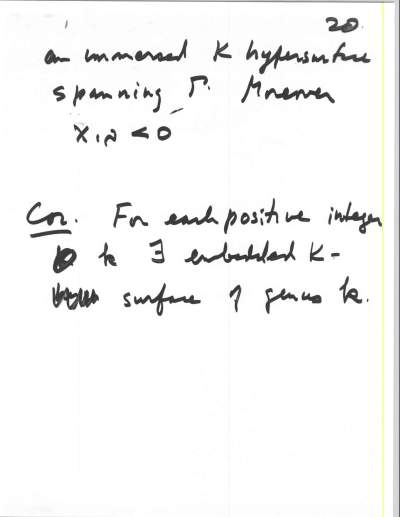 20
an immersed K hypersurface
spanning Γ. Moreover
X·N < 0
Cor. For each positive integer
k ∃ embedded K-
surface of genus k.